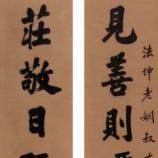 法坤老姻叔
見善則
莊敬日